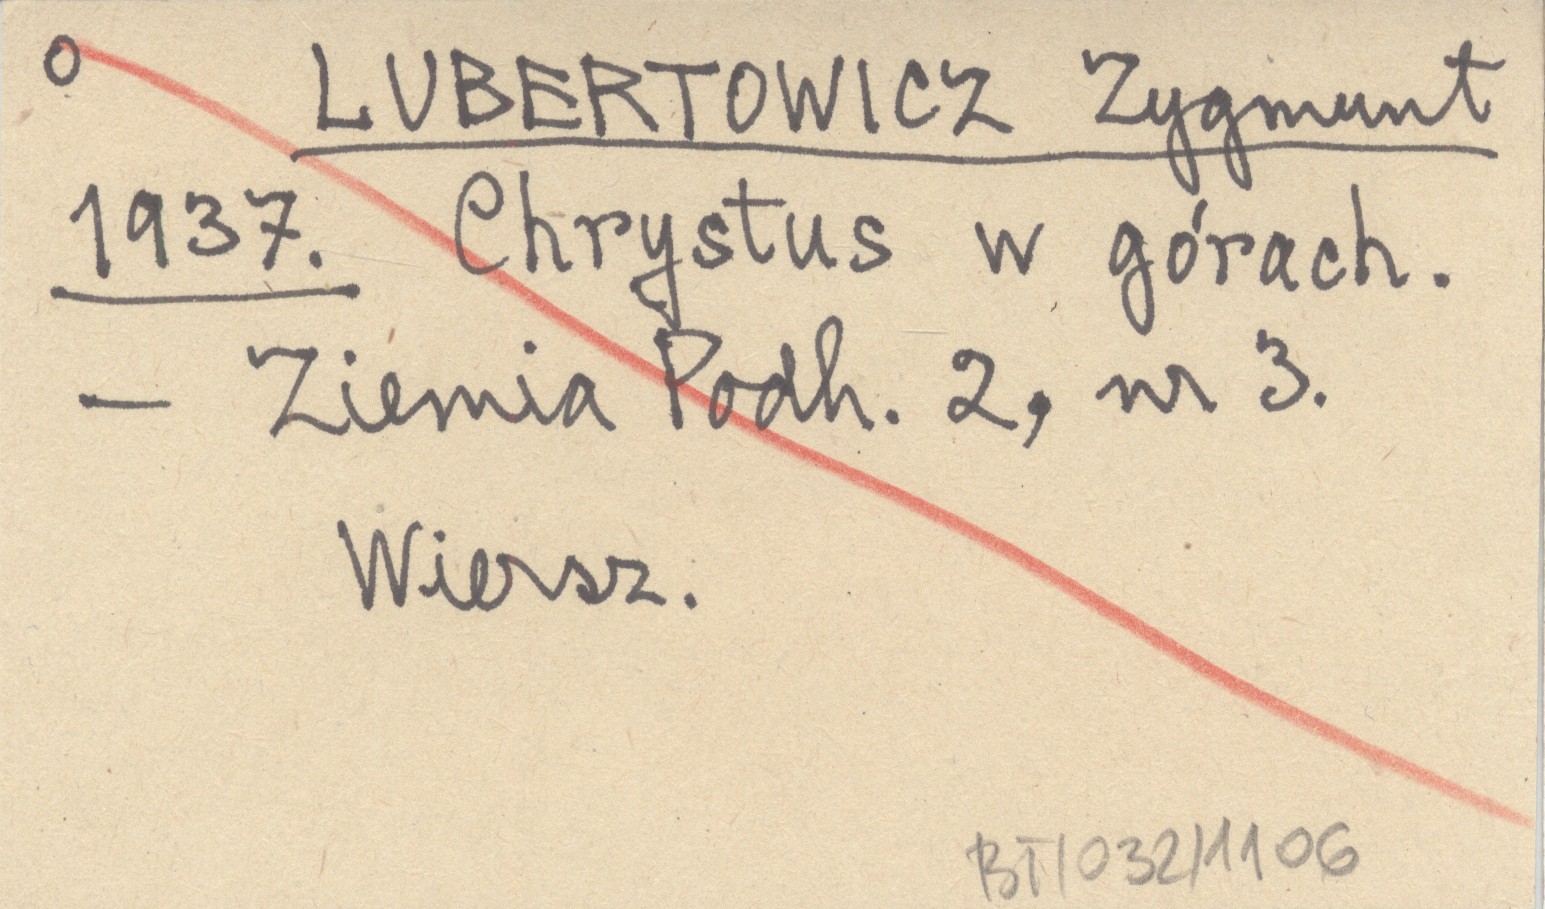 o LUBERTOWICZ Zygmunt
1937. Chrystus w górach.
— Ziemia Podh. 2, nr 3.
Wiersz.
BT/032/1106